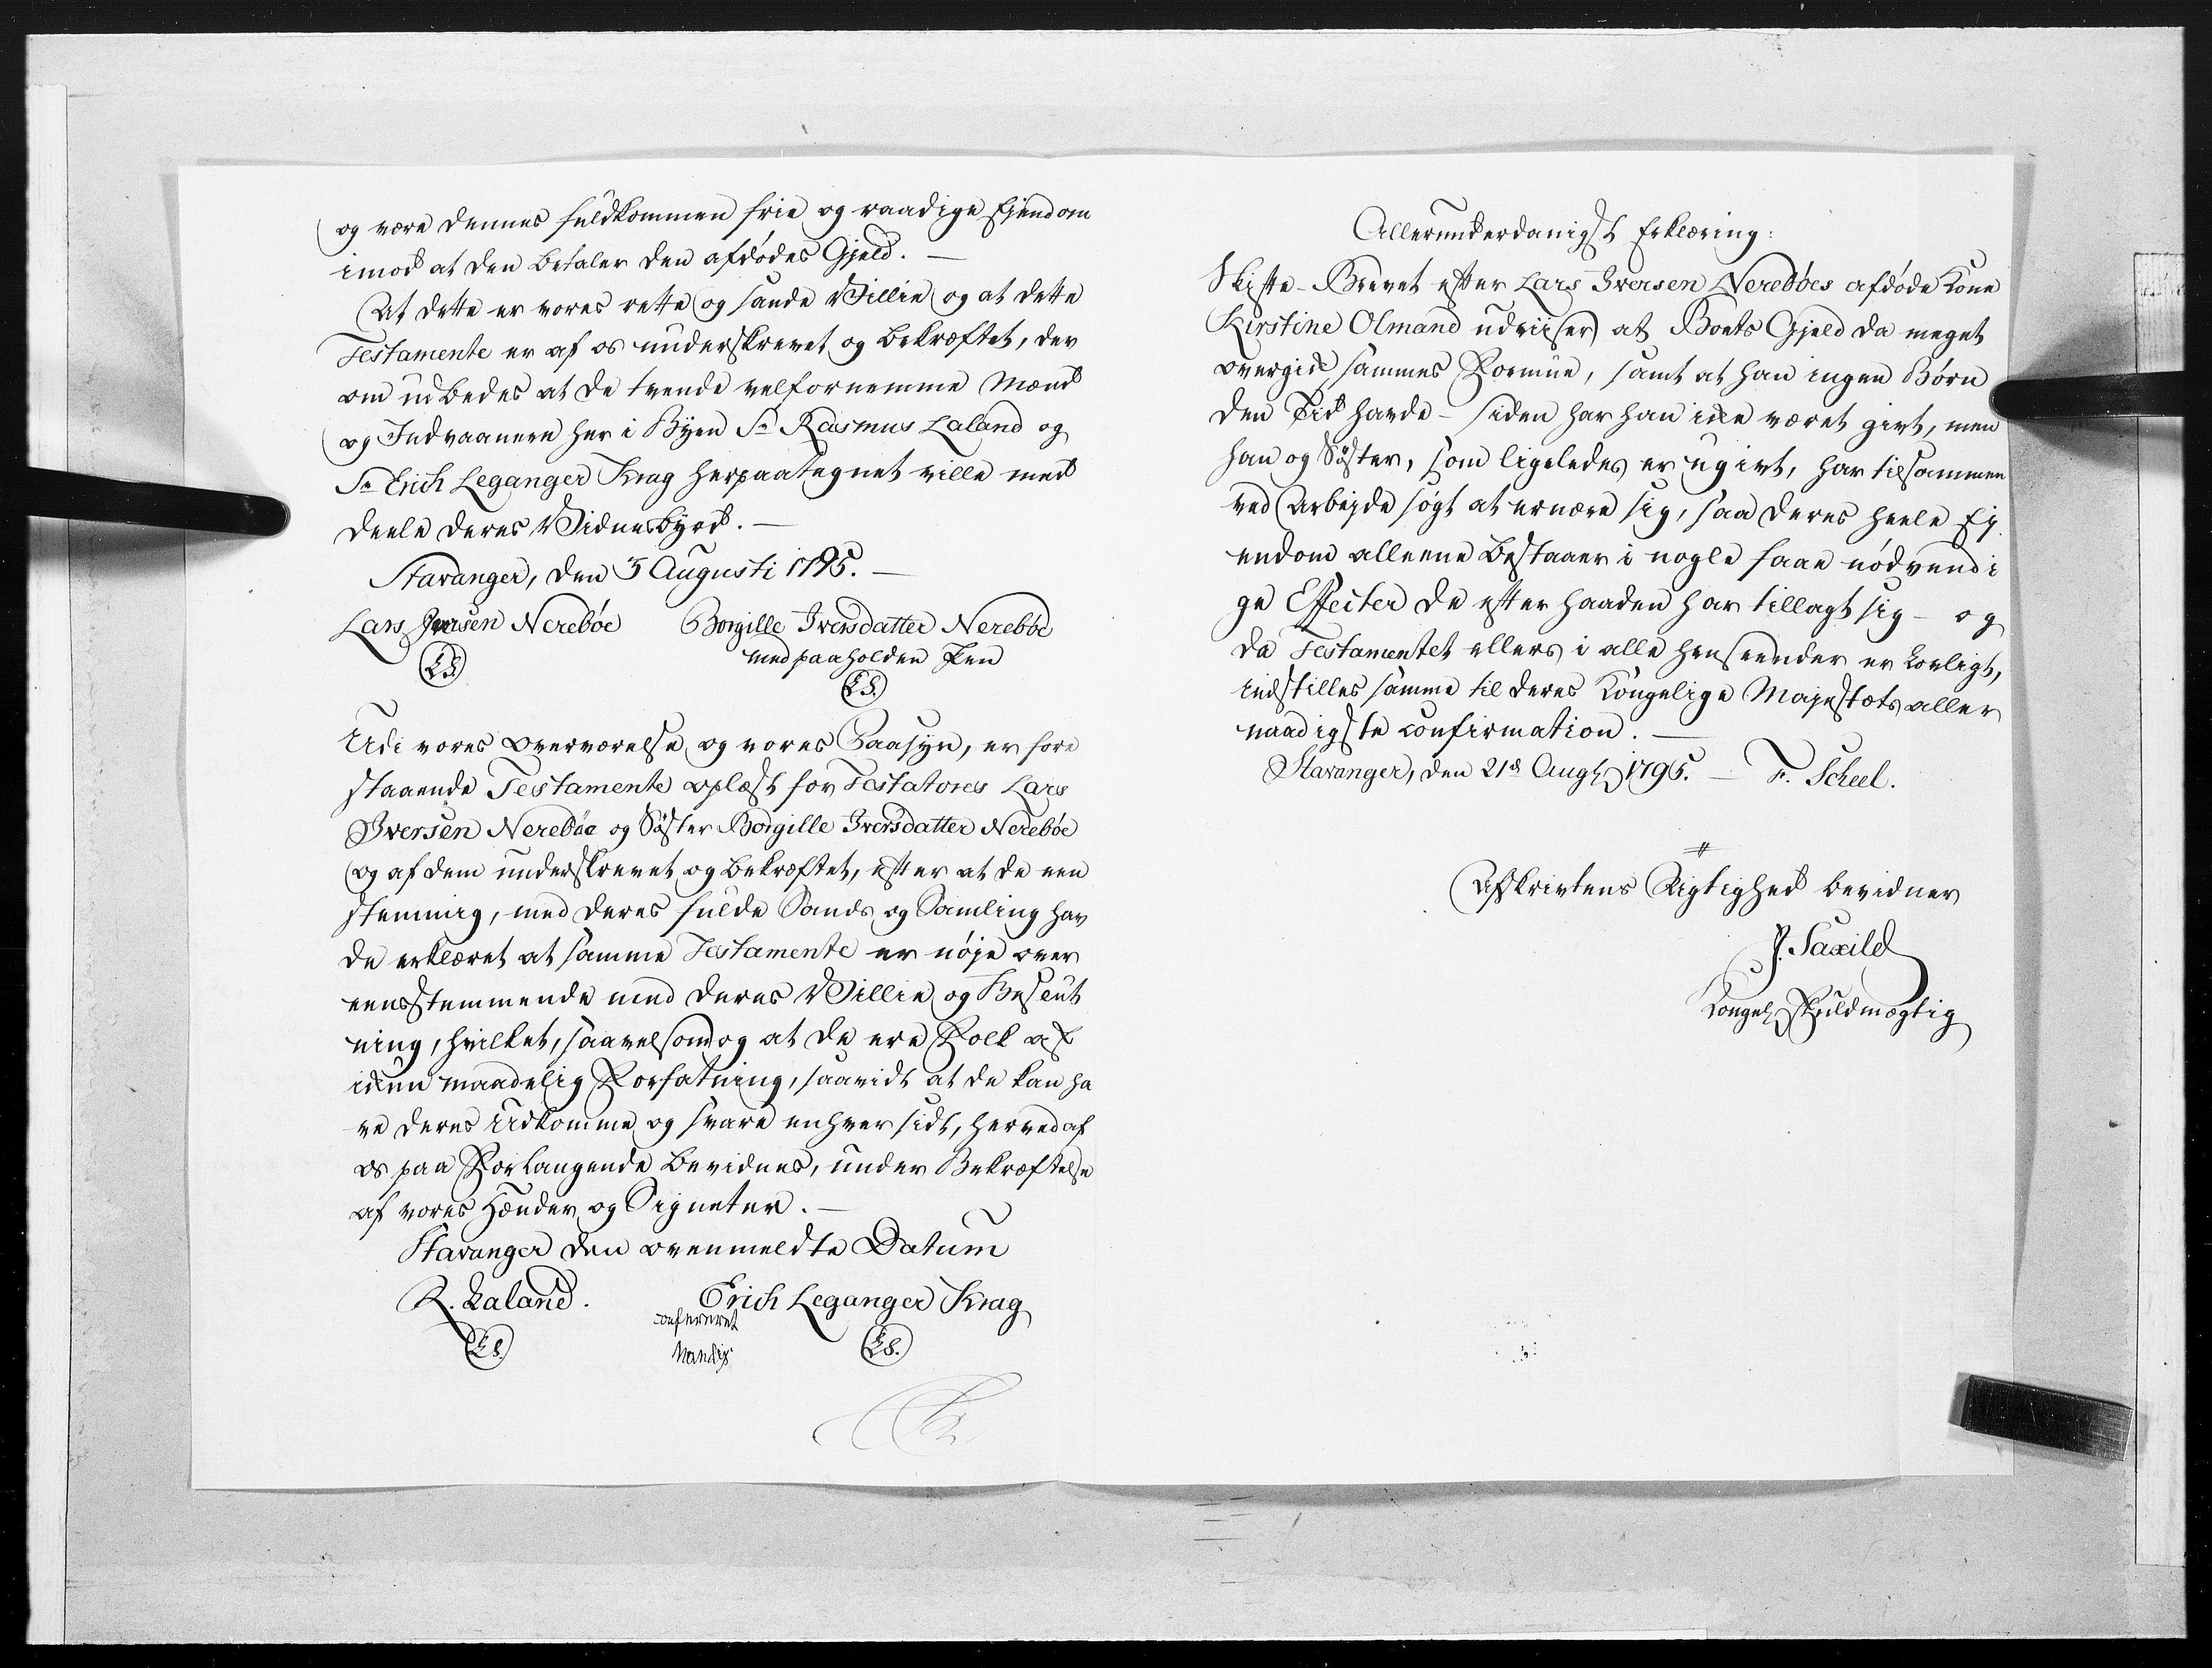 og være dennes fuldkommen frie og raadige Ejendom
imod at den betaler den afdødes Gjeld. —
At dette er vores rette og sande Villie og at dette
Testamente er af os underskrevet og bekræftet, der
om udbedes at de tvende velfornemme Mænd
og Indvaanere her i Byen Sr Rasmus Laland og
Sr Erich Leganger Krag herpaategnet ville med
deele deres Vidnesbyrd. —
Stavanger, den 5 Augusti 1795. —
Lars Iversen Nerebøe Borgille Iversdatter Nerebøe
med paaholden Pen
LS. LS.
Udi vores Overværelse og vores Paasyn, er fore
staaende Testamente oplæst for Testatores Lars
Iversen Nerebøe og Søster Borgille Iversdatter Nerebøe
og af dem underskrevet og bekræftet, efter at de een
stemmig, med deres fulde Sands og Samling hav
de erklæret at samme Testamente er nøje over
eensstemmende med deres Villie og Beslut
ning, hvilket, saavelsom og at de ere Folk af
ickun maadelig Forfatning, saavidt at de kan ha
ve deres Udkomme og svare enhver sidt, herved af
os paa Forlangende bevidnes, under Bekræftelse
af vores Hænder og Signeter. —
Stavanger den ovenmeldte Datum
R. Laland. Erich Leganger Krag
LS. LS.
confereret
Allerunderdanigst Erklæring:
Skifte-Brevet efter Lars Iversen Nerebøes afdøde Kone
Kirstine Olmand udviiser at Boets Gjeld da meget
overgik sammes Formue, samt at han ingen Børn
den Tid havde - siden har han icke været givt, men
han og Søster, som ligeledes er ugivt, har tilsammen
ved Arbejde søgt at ernære sig, saa deres heele Ej
endom alleene bestaaer i nogle faae nødvendi
ge Effecter de efter haaden har tillagt sig - og
da Testamentet ellers i alle henseender er lovligt,
indstilles samme til deres Kongelige Majestæts aller
naadigste confirmation. —
Stavanger, den 21d Augt 1795. — F. Scheel.
Afskrivtens Rigtighed bevidner
P. Saxild
Kongel Fuldmægtig